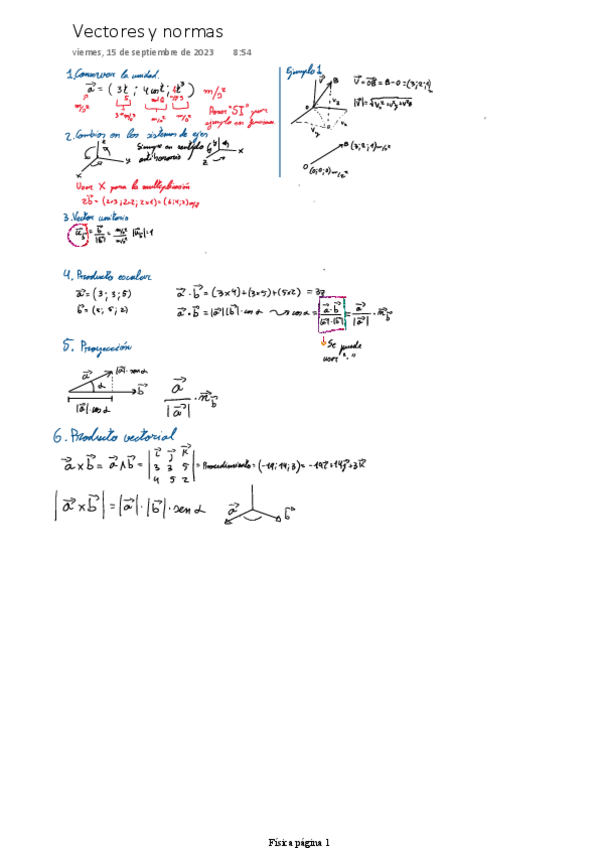 Vectores y normas
viernes, 15 de septiembre de 2023 8:54
1. Conservar la unidad.
a⃗ = (3t ; 4cost ; t³) m/s²
m/s²
m/s²
Poner "SI" por
ejemplo en
2. Cambios en los sistemas de ejes
Siempre en sentido
antihorario
z
y
x
y
x
z
Usar X para la multiplicación
2b⃗ = (2×3; 2×2; 2×1) = (6;4;2) m/s²
3. Vector unitario
= b⃗/|b⃗| = m/s²/m/s² = 1
Ejemplo 1
V⃗ = OB⃗ = B-O = (3;2;1)
|V⃗| = √
B (3;2;1) m/s²
O (0;0;0) m/s²
4. Producto escalar
a⃗ = (3; 3; 5)
a⃗ · b⃗ = (3×4)+(3×5)+(5×2) = 37
b⃗ = (4; 5; 2)
a⃗ · b⃗ = |a⃗|·|b⃗|·cos α ⇝ cos α = a⃗·b⃗/|a⃗|·|b⃗| = a⃗/|a⃗| · n⃗b
Se puede
usar "·"
5. Proyección
a⃗ |a⃗|·sen α
α b⃗
|a⃗|·cos α
a⃗/|a⃗| · n⃗b
6. Producto vectorial
a⃗ × b⃗ = a⃗ ∧ b⃗ = | i⃗ j⃗ k⃗ |
3 3 5
4 5 2
= Procedimiento = (-19; 14; 3) = -19i⃗ + 14j⃗ + 3k⃗
|a⃗ × b⃗| = |a⃗|·|b⃗|·sen α
a⃗ b⃗
Física página 1